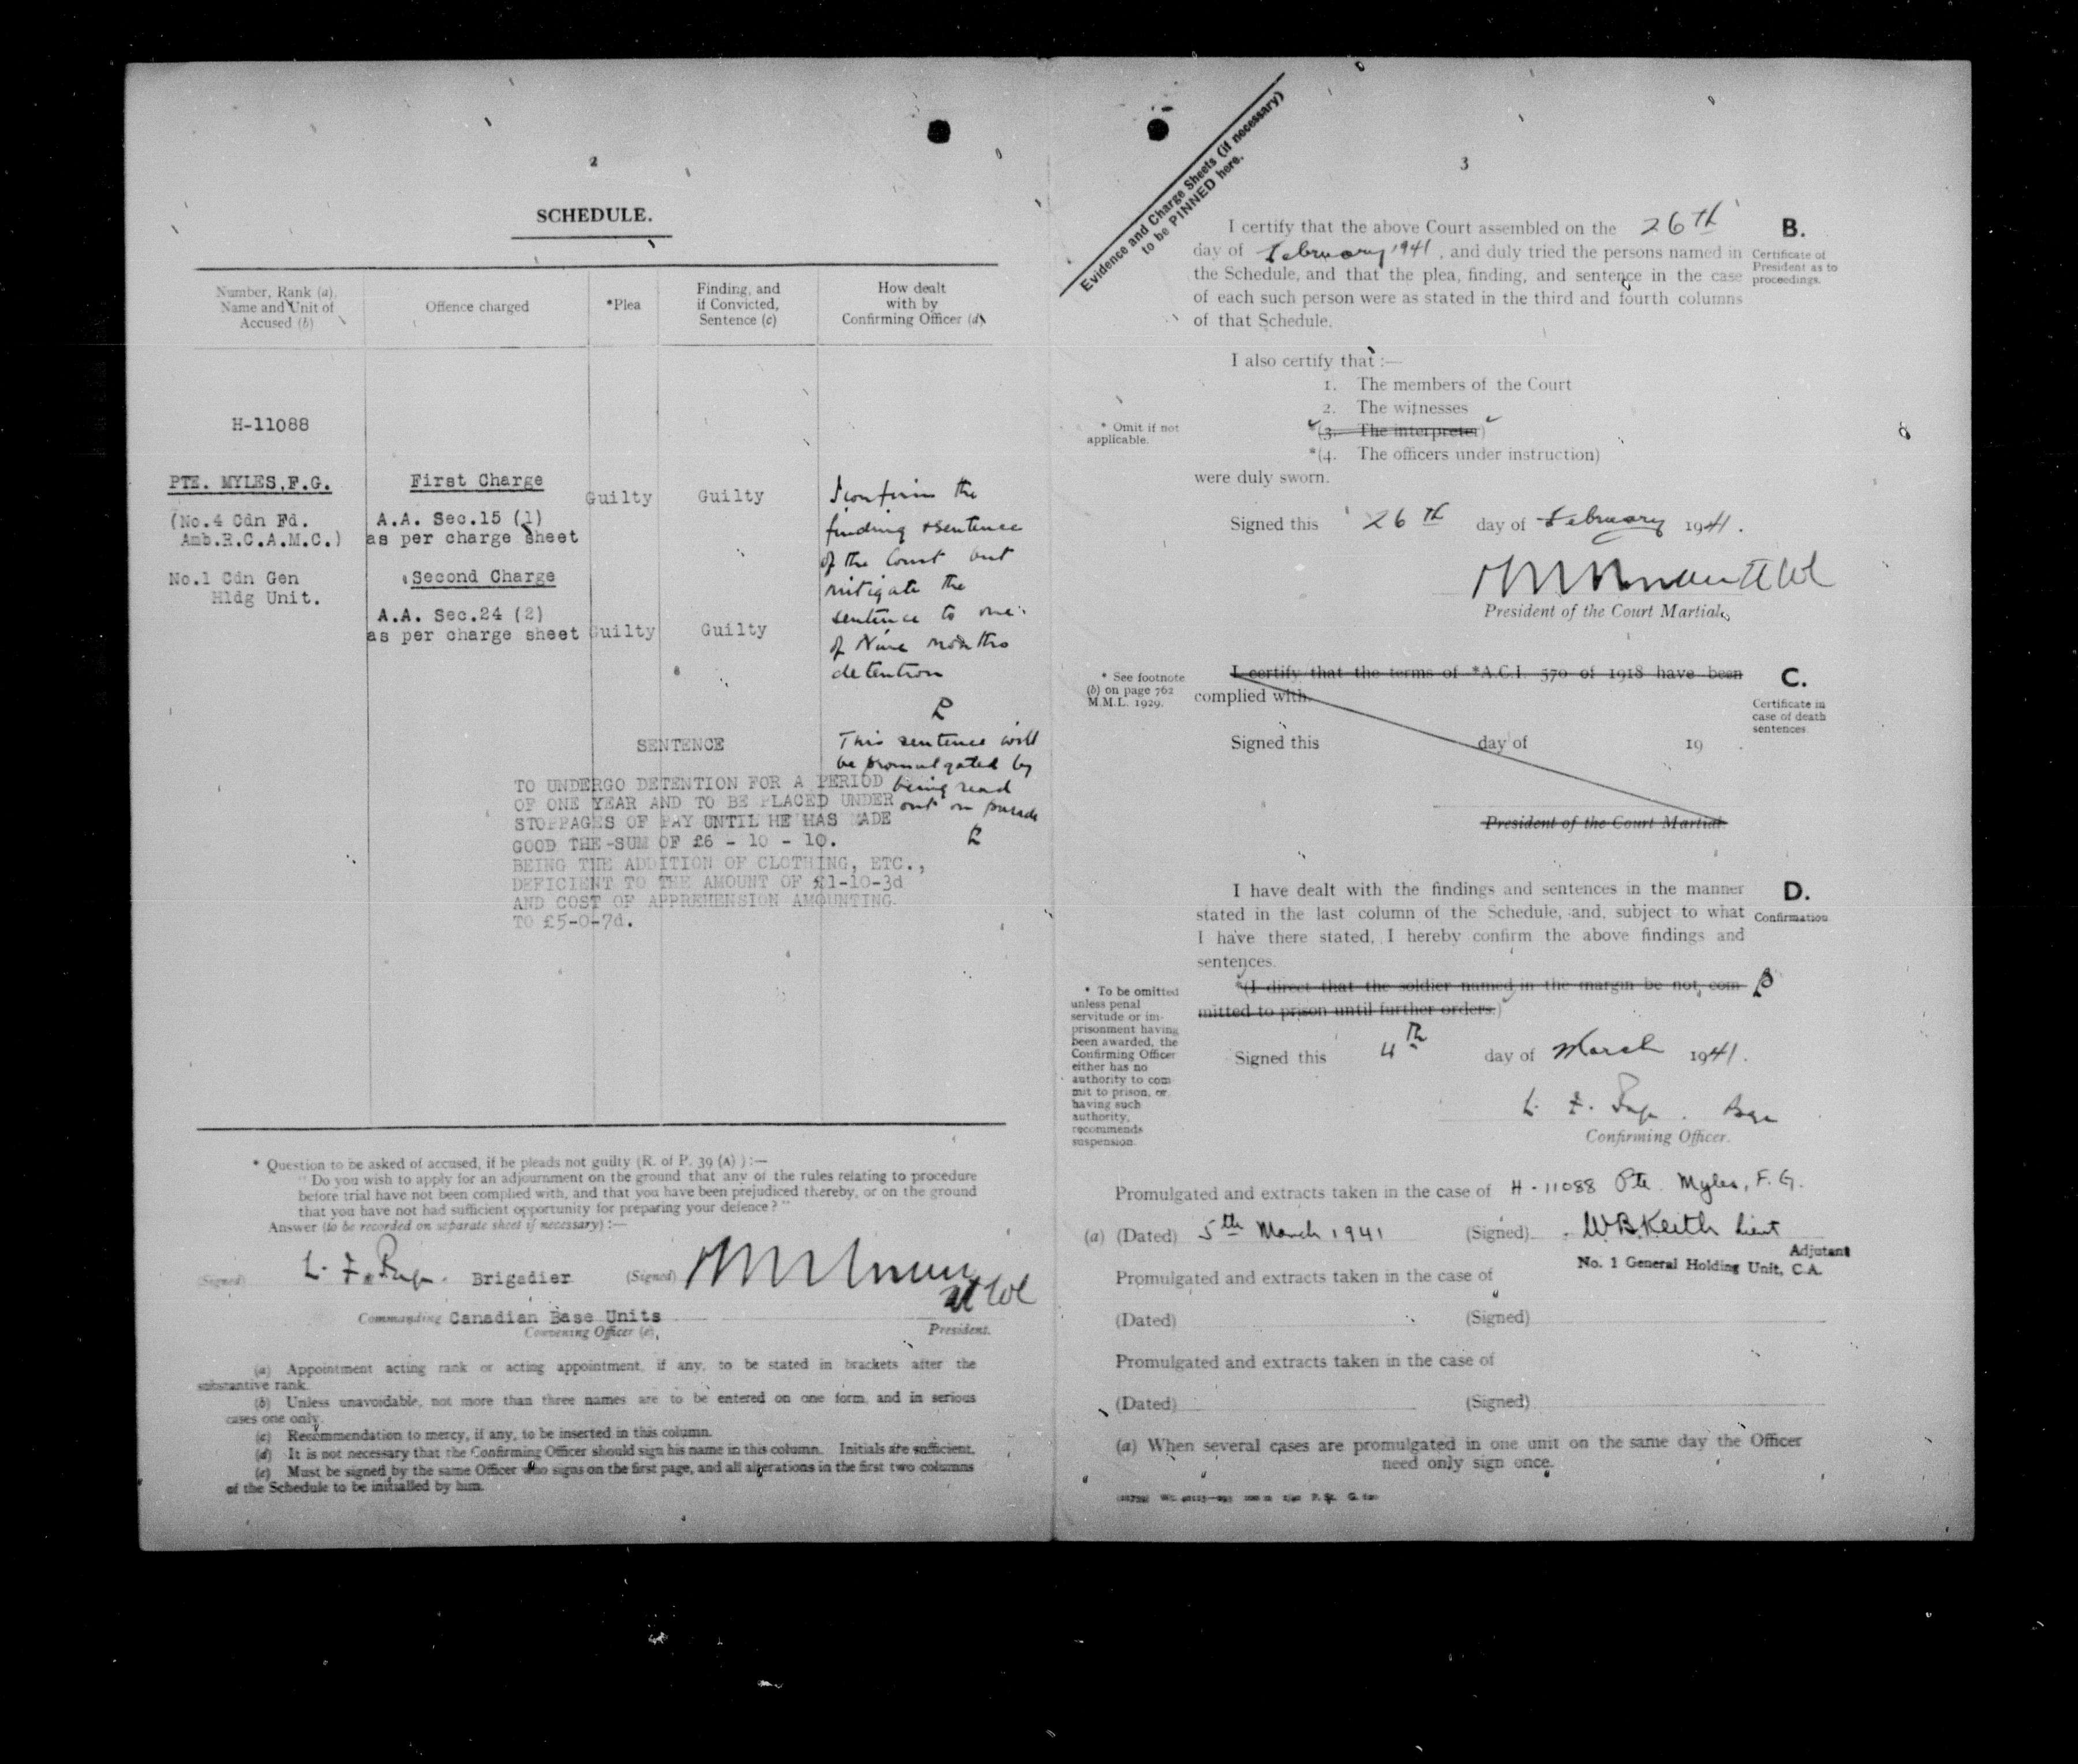 2
SCHEDULE.
Number, Rank (a), Name and Unit of Accused (b)
Offence charged
*Plea
Finding, and if Convicted, Sentence (c)
How dealt with by Confirming Officer (d)
H-11088
PTE. MYLES, F.G.
(No.4 Cdn Fd.
Amb.R.C.A.M.C.)
No.1 Cdn Gen
Hldg Unit.
First Charge
A.A. Sec.15 (1)
as per charge sheet
Second Charge
A.A. Sec.24 (2)
as per charge sheet
Guilty
Guilty
Guilty
Guilty
I confirm the
finding & sentence
of the Court but
mitigate the
sentence to one
of Nine months
detention
This sentence will
be promulgated by
being read
out on parade
SENTENCE
TO UNDERGO DETENTION FOR A PERIOD
OF ONE YEAR AND TO BE PLACED UNDER
STOPPAGES OF PAY UNTIL HE HAS MADE
GOOD THE SUM OF £6 - 10 - 10.
BEING THE ADDITION OF CLOTHING, ETC.,
DEFICIENT TO THE AMOUNT OF £1-10-3d
AND COST OF APPREHENSION AMOUNTING
TO £5-0-7d.
* Question to be asked of accused, if he pleads not guilty (R. of P. 39 (A) ) :—
" Do you wish to apply for an adjournment on the ground that any of the rules relating to procedure
before trial have not been complied with, and that you have been prejudiced thereby, or on the ground
that you have not had sufficient opportunity for preparing your defence ? "
Answer (to be recorded on separate sheet if necessary) :—
(Signed) Brigadier (Signed)
Commanding Canadian Base Units
Convening Officer (e).
President.
(a) Appointment acting rank or acting appointment, if any, to be stated in brackets after the
substantive rank.
(b) Unless unavoidable, not more than three names are to be entered on one form, and in serious
cases one only.
(c) Recommendation to mercy, if any, to be inserted in this column.
(d) It is not necessary that the Confirming Officer should sign his name in this column. Initials are sufficient.
(e) Must be signed by the same Officer who signs on the first page, and all alterations in the first two columns
of the Schedule to be initialled by him.
Evidence and Charge Sheets (if necessary)
to be PINNED here.
3
I certify that the above Court assembled on the 26th
day of February 1941, and duly tried the persons named in
the Schedule, and that the plea, finding, and sentence in the case
of each such person were as stated in the third and fourth columns
of that Schedule.
B.
Certificate of
President as to
proceedings.
I also certify that :—
1. The members of the Court
2. The witnesses
* Omit if not
applicable.
*(3. The interpreter)
*(4. The officers under instruction)
were duly sworn.
Signed this 26th day of February 1941.
President of the Court Martial.
* See footnote
(b) on page 762
M.M.L. 1929.
I certify that the terms of *A.C.I. 570 of 1918 have been
complied with.
C.
Certificate in
case of death
sentences
Signed this day of 19 .
President of the Court Martial.
I have dealt with the findings and sentences in the manner
stated in the last column of the Schedule, and, subject to what
I have there stated, I hereby confirm the above findings and
sentences.
D.
Confirmation
* To be omitted
unless penal
servitude or im-
prisonment having
been awarded, the
Confirming Officer
either has no
authority to com
mit to prison, or
having such
authority,
recommends
suspension.
*(I direct that the soldier named in the margin be not com-
mitted to prison until further orders.)
Signed this 4th day of March 1941.
Confirming Officer.
Promulgated and extracts taken in the case of H-11088 Pte. Myles, F.G.
(a) (Dated) 5th March 1941 (Signed) W.B. Keith Lieut
Adjutant
No. 1 General Holding Unit, C.A.
Promulgated and extracts taken in the case of
(Dated) (Signed)
Promulgated and extracts taken in the case of
(Dated) (Signed)
(a) When several cases are promulgated in one unit on the same day the Officer
need only sign once.